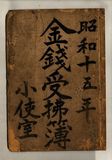 昭和十五年
金銭受拂簿
小使室